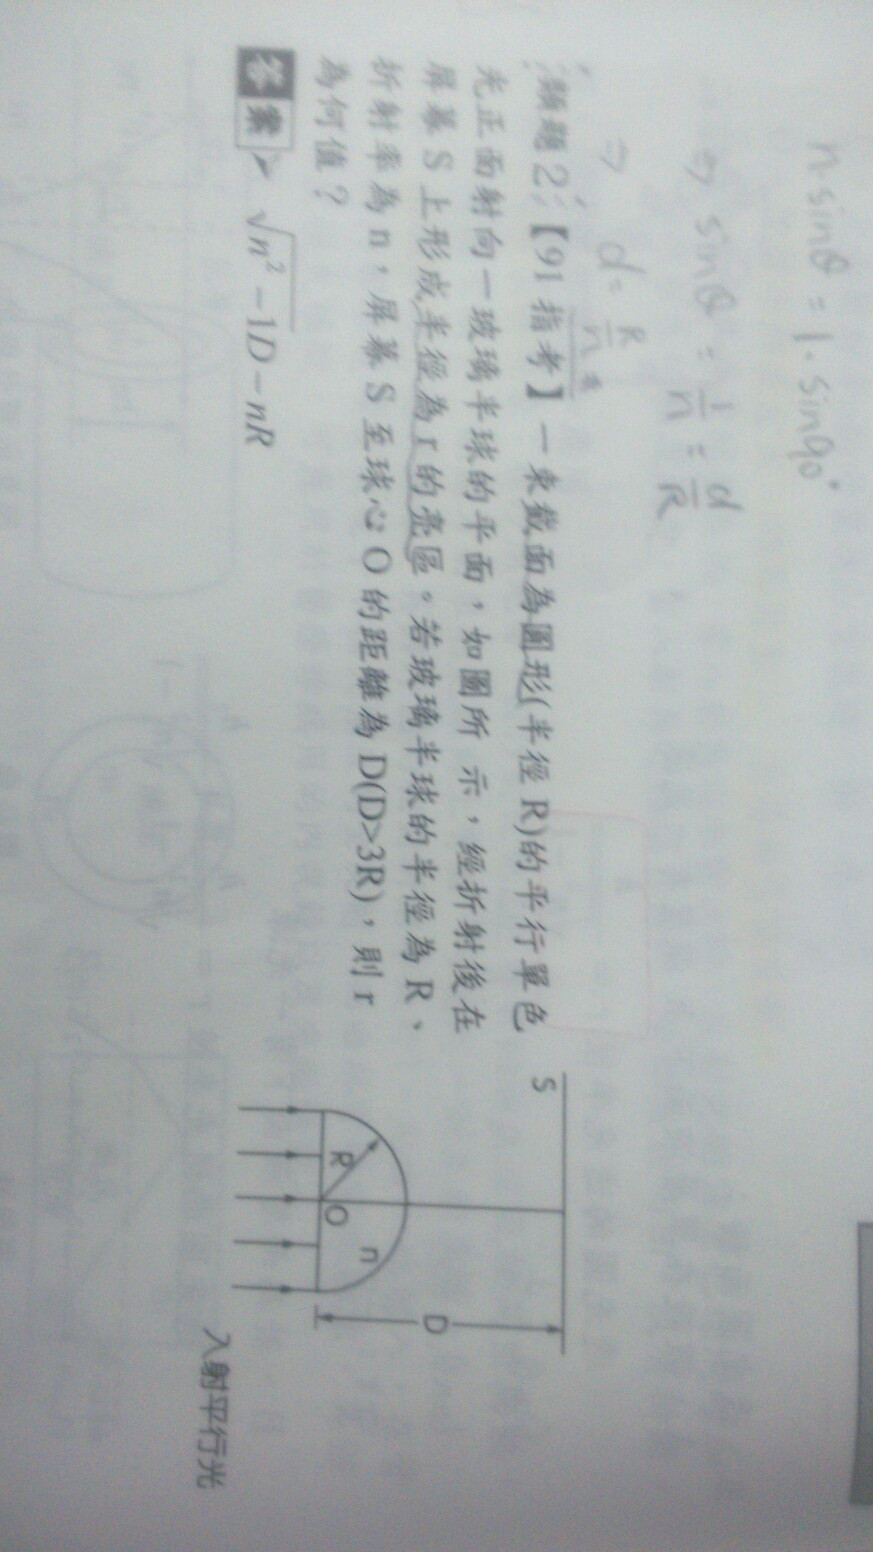 n·sinθ = 1·sin90°
⇒ sinθ = 1/n = d/R
⇒ d = R/n
類題2：【91 指考】一束截面為圓形(半徑 R)的平行單色
光正面射向一玻璃半球的平面，如圖所 示，經折射後在
屏幕 S 上形成半徑為 r 的亮區。若玻璃半球的半徑為 R、
折射率為 n，屏幕 S 至球心 O 的距離為 D(D>3R)，則 r
為何值？
答案 √n²−1D−nR
S
R
O
n
D
入射平行光